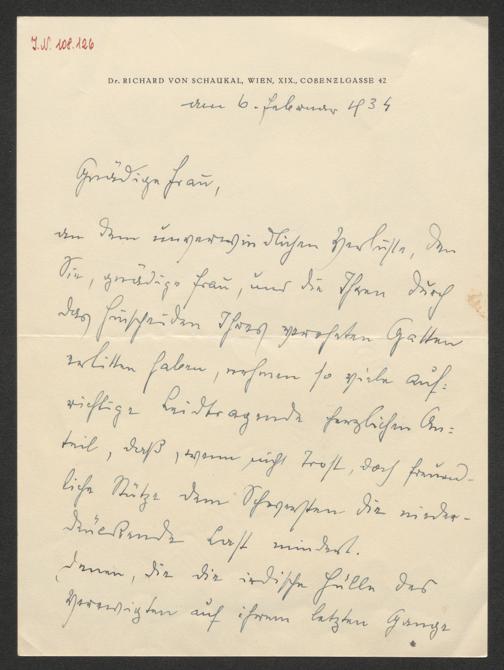 J.N. 108.126
Dr. RICHARD VON SCHAUKAL, WIEN, XIX., COBENZLGASSE 42
am 6. Februar 1934
Gnädige Frau,
an dem unverwindlichen Verluste, den
Sie, gnädige Frau, und die Ihren durch
das Hinscheiden Ihres verehrten Gatten
erlitten haben, nehmen so viele auf-
richtige Leidtragende herzlichen An-
teil, daß, wenn nicht Trost, doch freund-
liche Stütze dem Schwersten die nieder-
drückende Last mindert.
Denen, die die irdische Hülle des
Verewigten auf ihrem letzten Gange